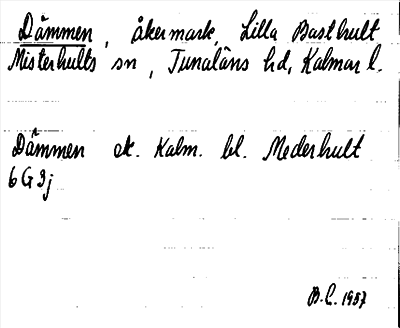 Dämmen, åkermark, Lilla Basthult
Misterhults sn, Tunaläns hd, Kalmar l.
Dämmen ek. Kalm. bl. Mederhult
6G9j
B.L. 1957